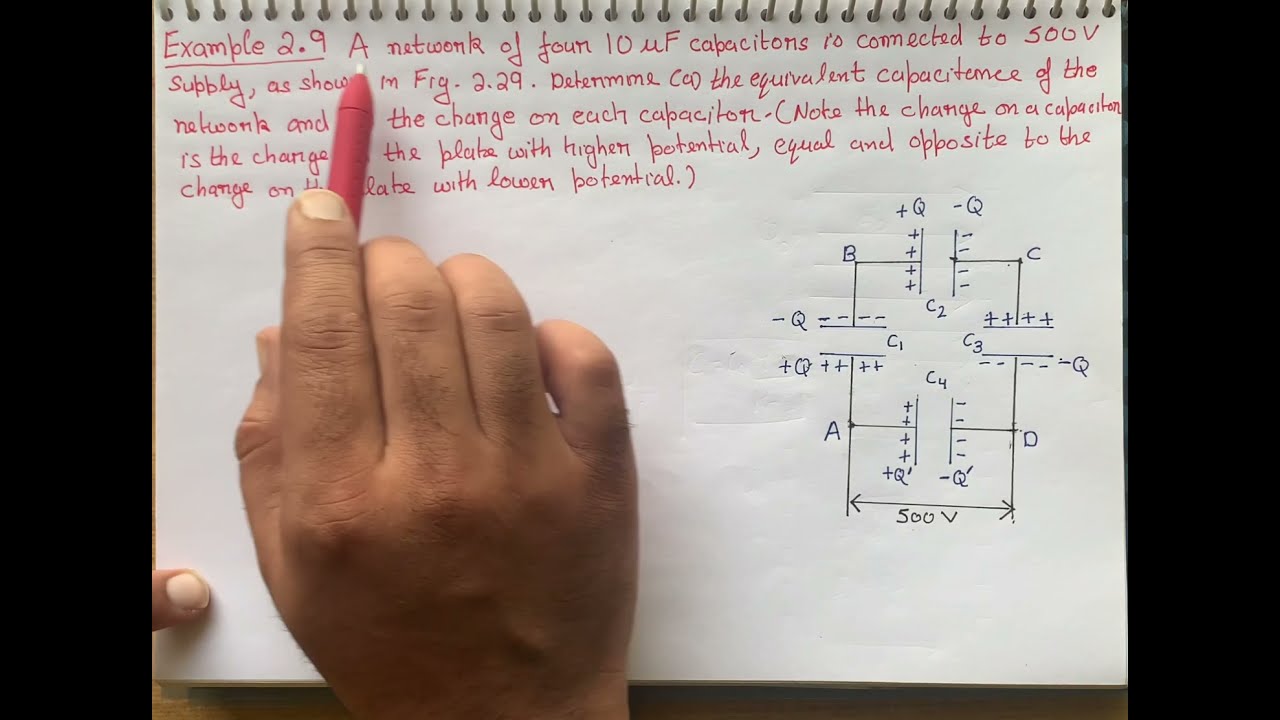 Example 2.9 A network of four 10 µF capacitors is connected to 500V
Supply, as show in Fig. 2.29. Determine (a) the equivalent capacitance of the
network and the charge on each capacitor. (Note the charge on a capacitor
is the charge the plate with higher potential, equal and opposite to the
charge on with lower potential.)
+Q -Q
B C
C2
-Q ---- ++++
C1 C3
+Q ++++ ---- -Q
C4
A D
+Q' -Q'
500V